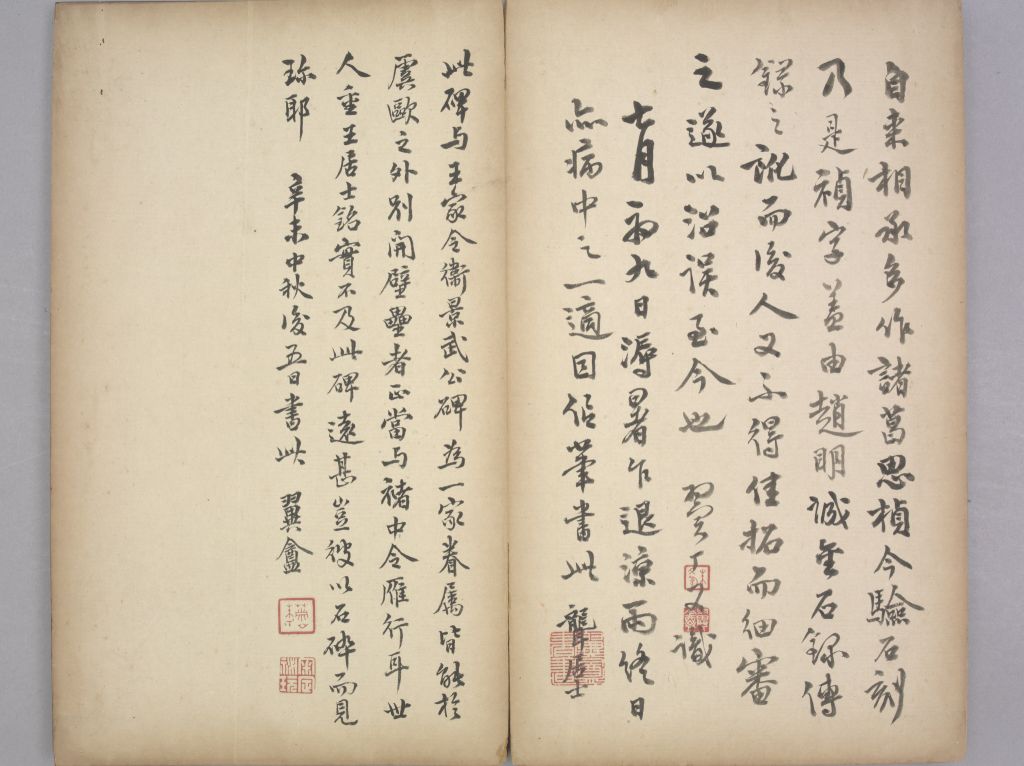 自来相承多作諸葛思楨今驗石刻
乃是禎字蓋由趙明誠金石錄傳
錄之訛而後人又不得佳拓而細審
之遂以沿误至今也 翼丁又識
七月初九日溽暑乍退涼雨終日
点病中之一適因信筆書此 龔居士
此碑与王家令衞景武公碑為一家眷屬皆能於
虞歐之外别開壁壘者正當与褚中令雁行耳世
人重王居士銘實不及此碑遠甚豈彼以石碎而見
珍耶 辛未中秋後五日書此 翼盦